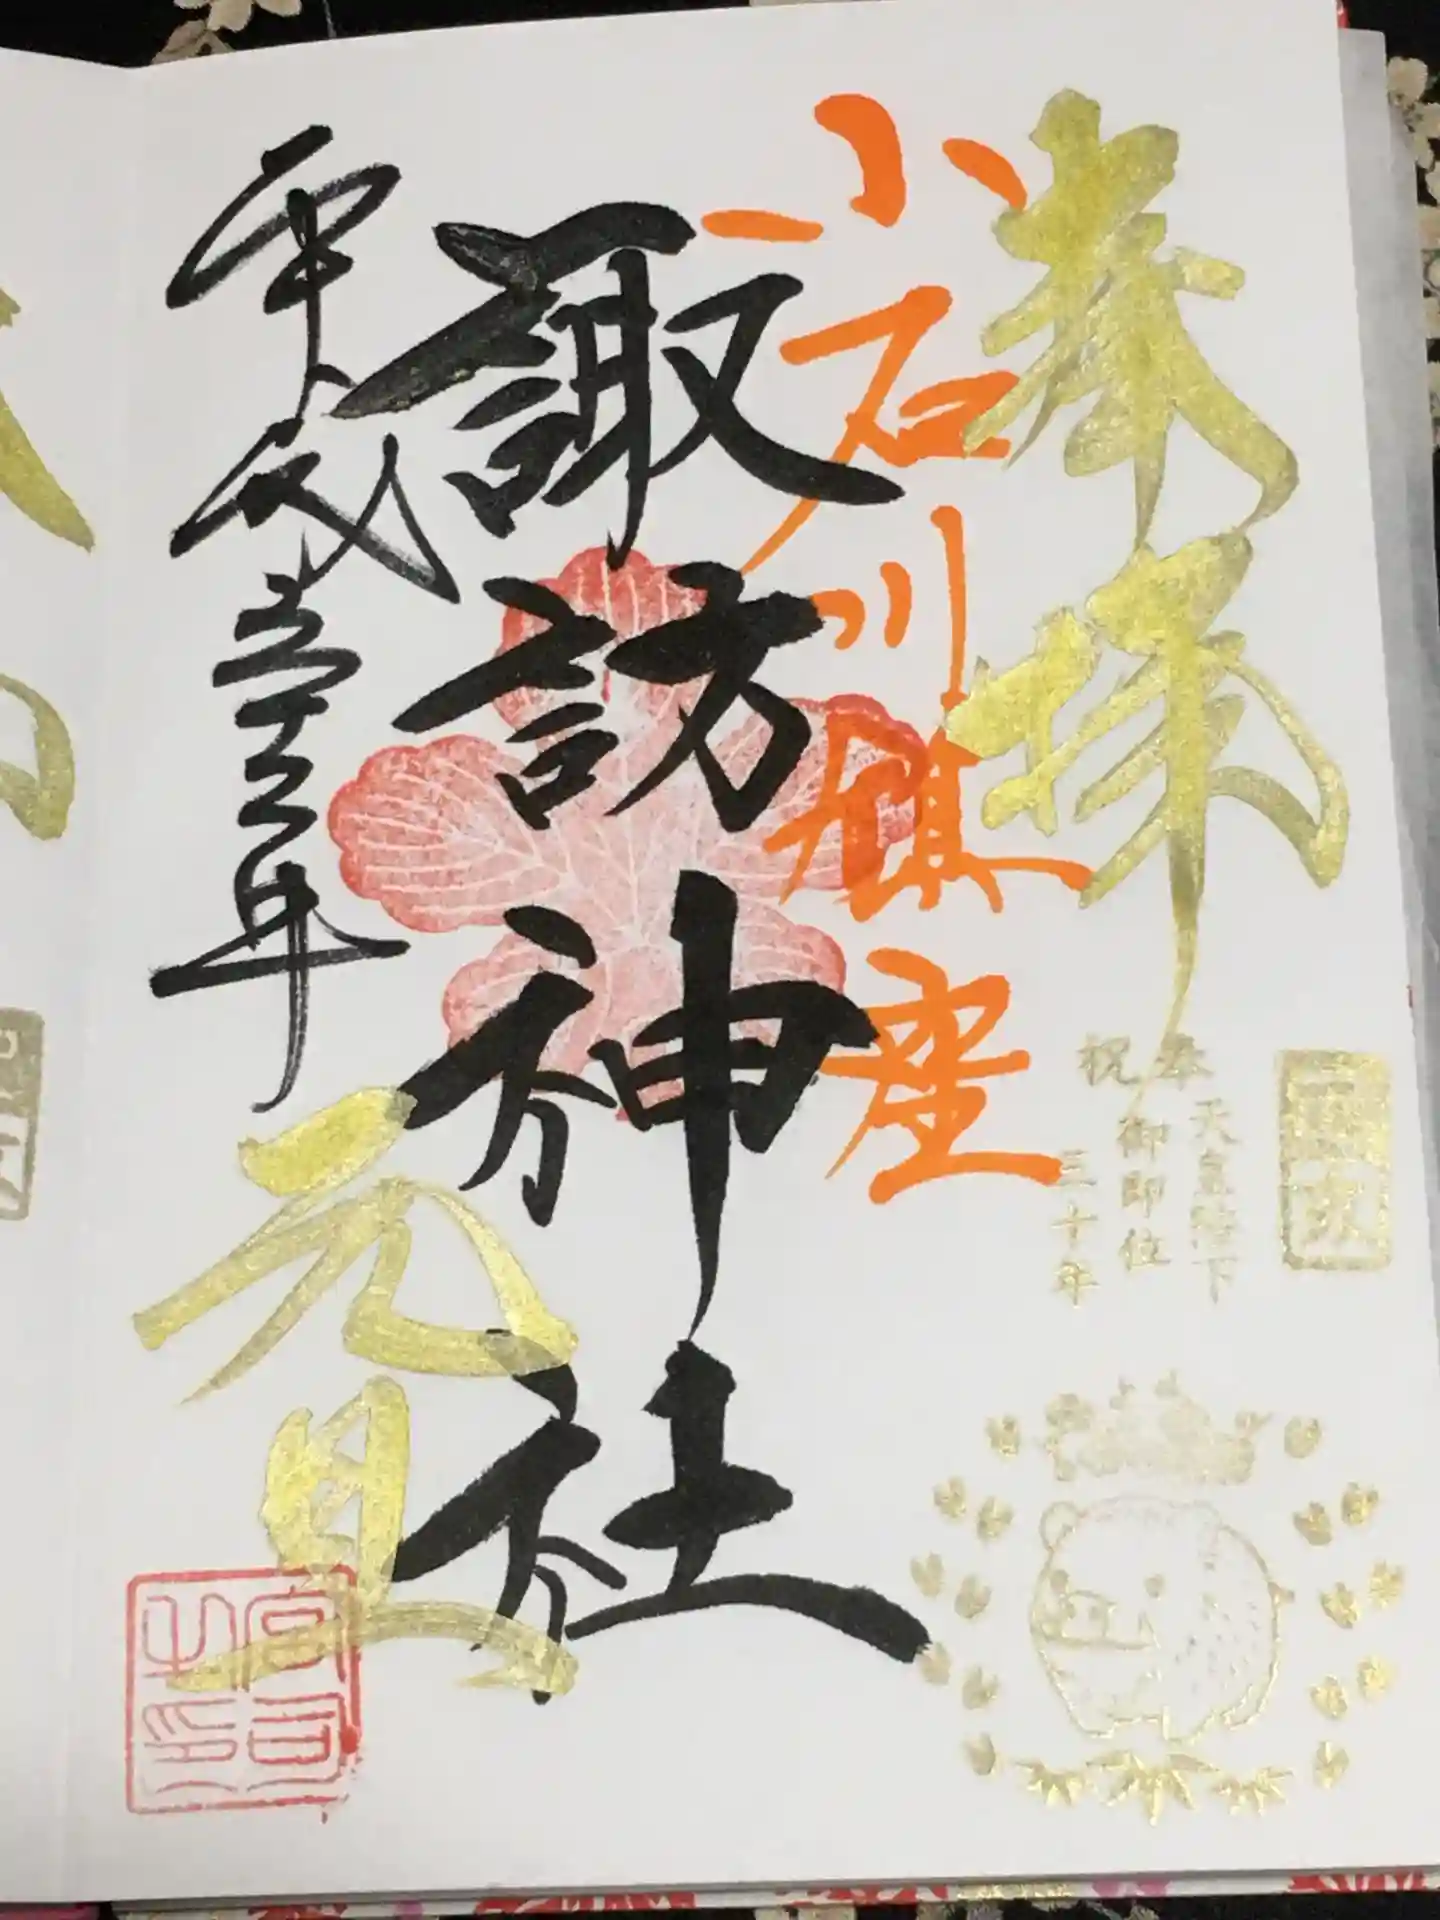 奉拝
小石川鎮座
諏訪神社
平成三十一年
元旦
奉祝
天皇陛下
御即位
三十年
宮司之印